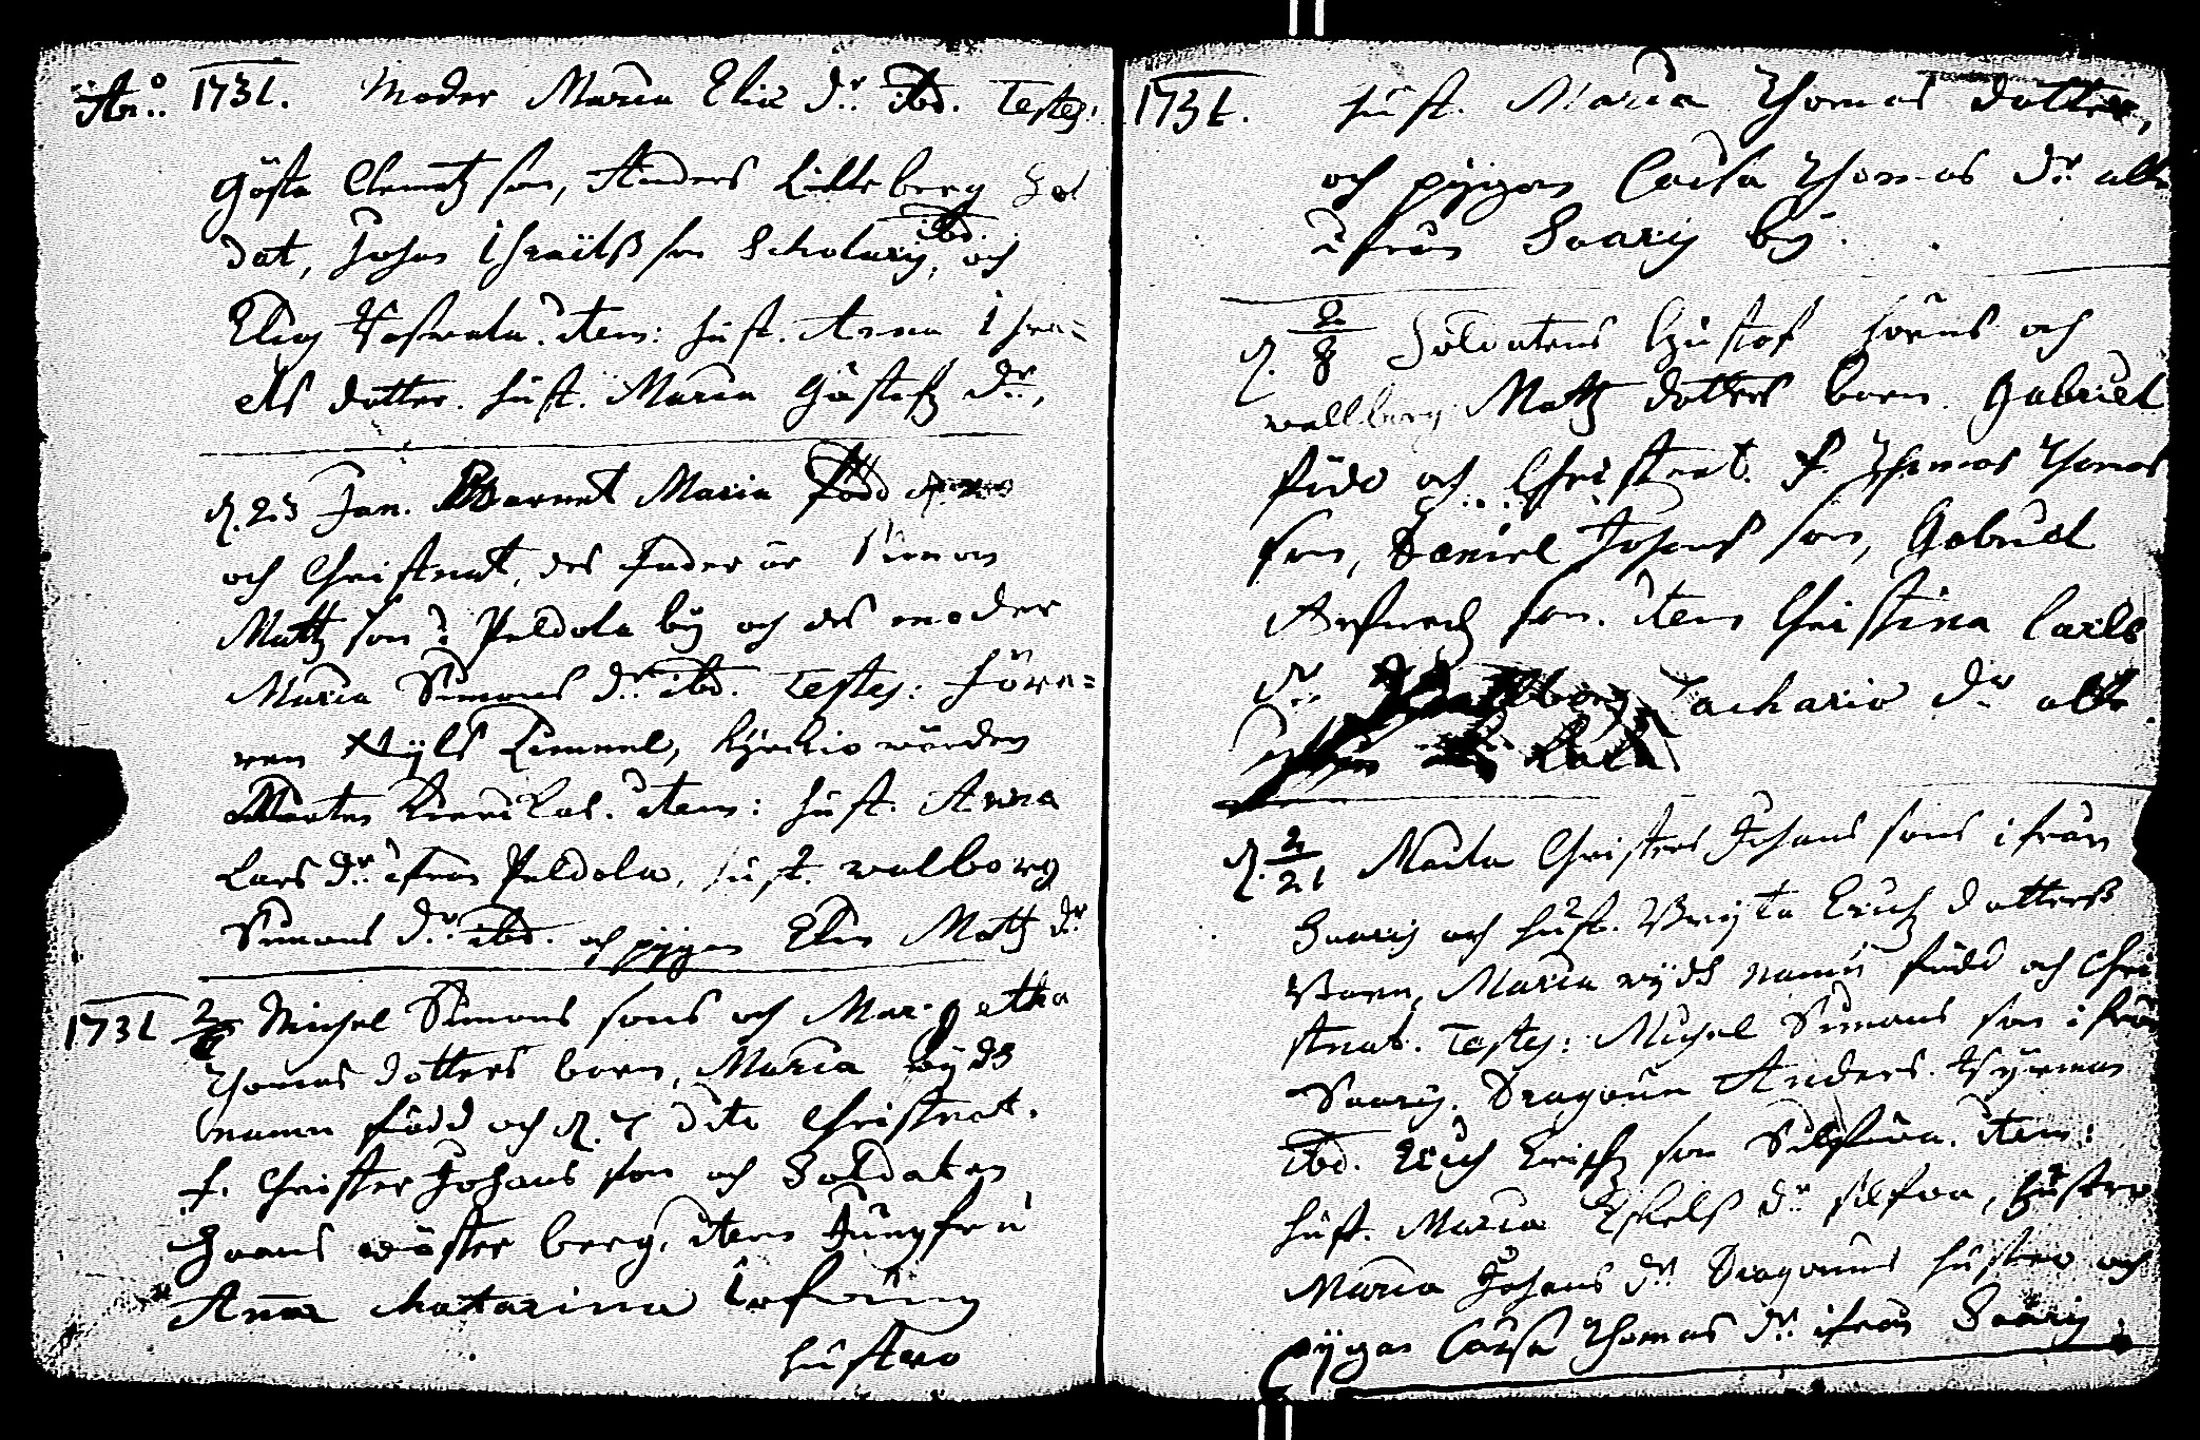 An:o 1731. Moder Maria Eliæ dr ibd. Testes:
Gösta Clemetz son, Anders Lilleberg Sol
dat, Johan Israelß son Scholaris, ibd. och
Elias item: hust. Anna Isra=
els dotter. hust. Maria Göstafz dr,
d. 23 Jan. Barnet Maria född
och Christnat, des Fader är Simon
Mattz son i Peldola by och des moder
Maria Simons dr ibd. Testes: Före=
ren Nyls kyrkio wärden
Morten item: hust. Anna
Lars dr ifrån Peldola, hust. walborg
Simons dr ibd. och pigan Elin Mattz dr
1731 Michel Simons sons och Margetha
Thomas dotters barn, Maria wyds
namn född och d. 7 dito Christnat.
f. Christer Johans son och Soldaten
wästerberg, item Jungfru
Anna Catarina
hustro
1731. hust. Maria Thomas dotter,
och pygan Caisa Thomas dr alle
ifrån Saaris by.
d. 2/8 Soldatens Gustaf och
wallborg Mattz dotters barn. Gabriel
född och Christnat. f. Thomas Thomas
son, Daniel Johans son, Gabriel
son. item Christina Carls
dr Zachario dr alle
d. 2/21 Christers Johans sons ifrån
Saaris och hust. Bryta Erichz dotterß
Barn, Maria wyds namn född och Chri
stnat. Testes: Michel Simons son ifrån
Saaris. Dragoun Anders
ibd. Erich Erichz son item:
hust. Maria Eskels dr hustro
Maria Johans dr Dragouns hustro och
pygan Caisa Thomas dr ifrån Saaris